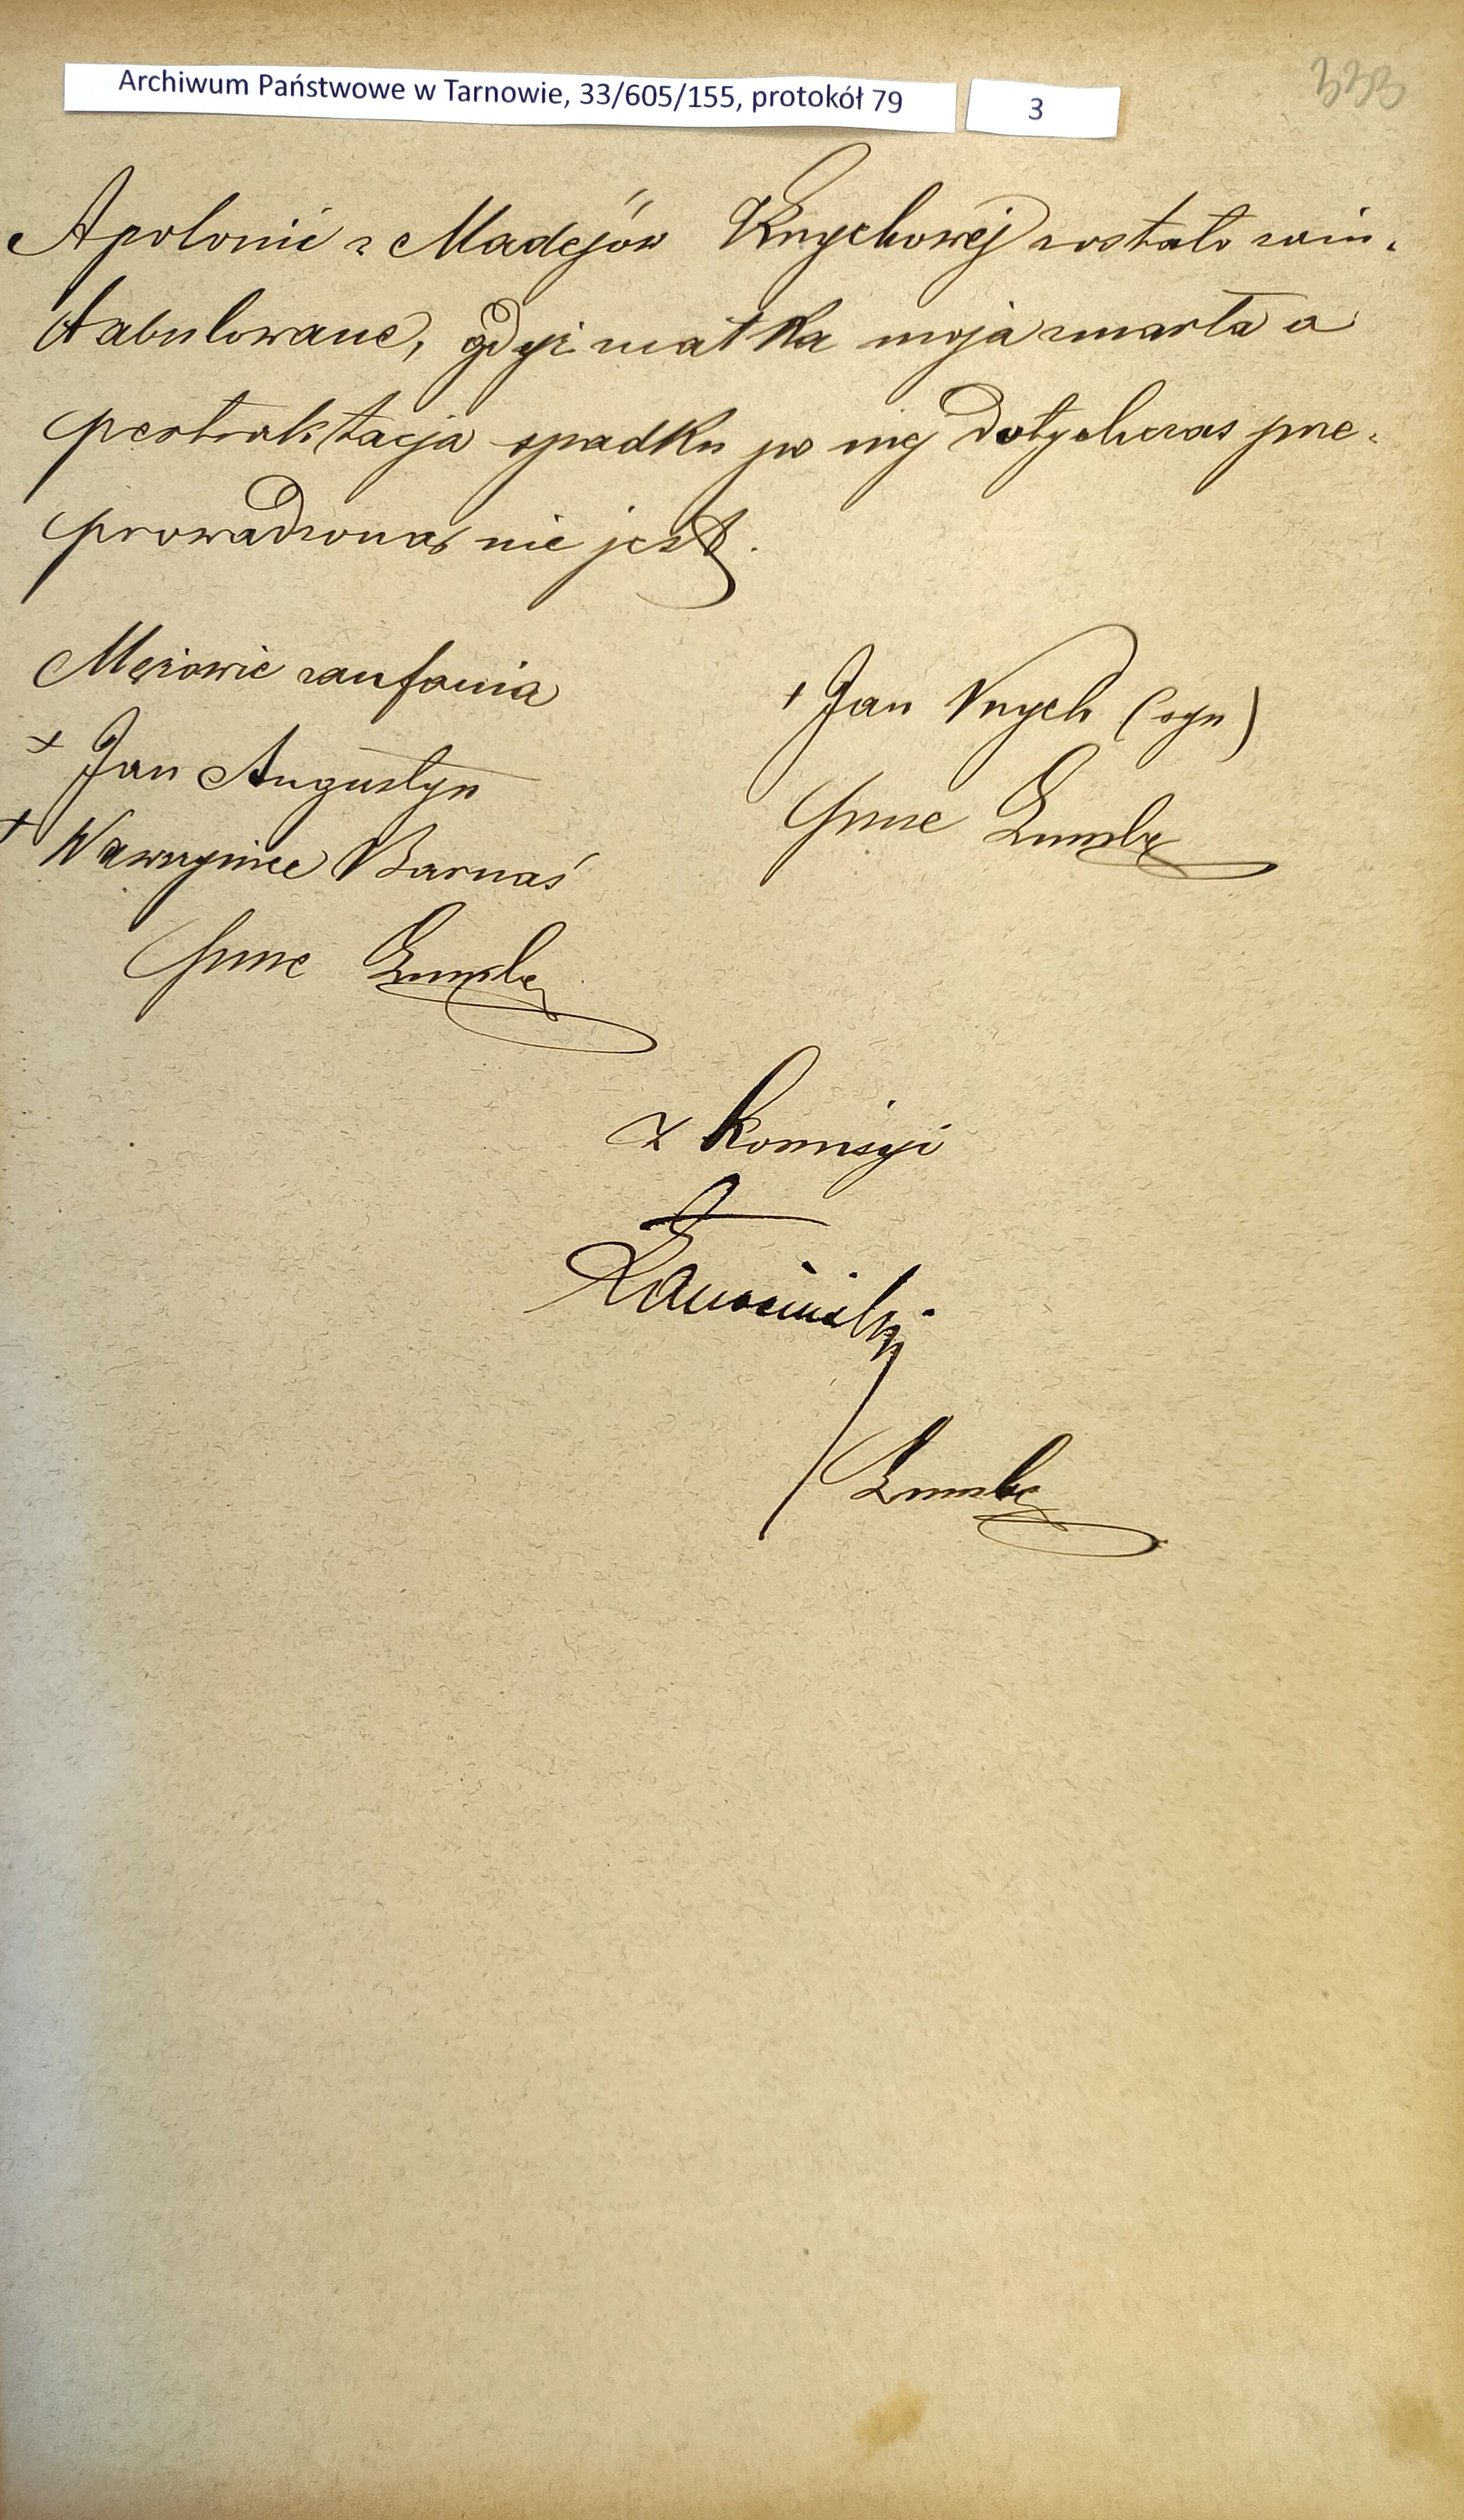 Archiwum Państwowe w Tarnowie, 33/605/155, protokół 79
3
333
Apolonii z Madejów Knychowej zostało zain-
tabulowane, gdyż matka moja zmarła a
pertraktacja spadku po niej dotychczas prze-
prowadzoną nie jest.
Mężowie zaufania
+ Jan Augustyn
+ Wawrzyniec Barnaś
+ Jan Knych (syn)
z komisyi